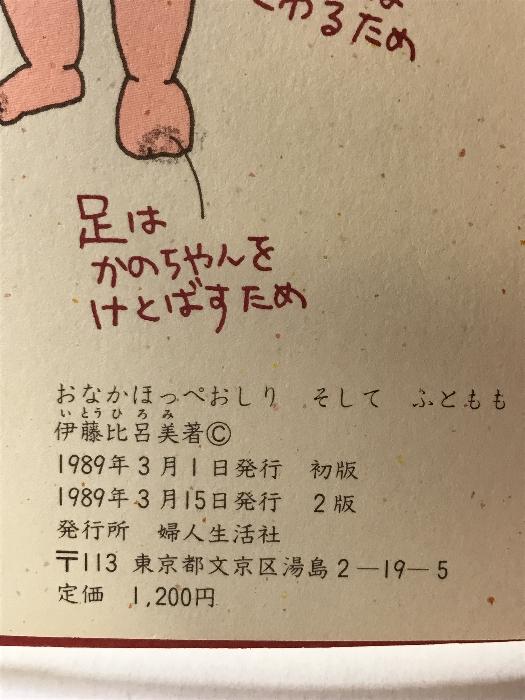 さわるため
足は
かのちゃんを
けとばすため
おなかほっぺおしり そして ふともも
いとうひろみ
伊藤比呂美著©
1989年3月1日発行 初版
1989年3月15日発行 2版
発行所 婦人生活社
〒113 東京都文京区湯島2―19―5
定価 1,200円